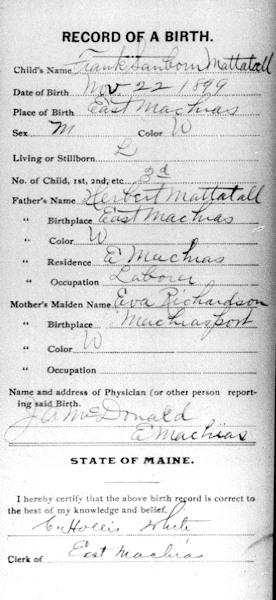 RECORD OF A BIRTH.
Child's Name Frank Sanborn Mattatall
Date of Birth Nov 22 1899
Place of Birth East Machias
Sex M Color W
Living or Stillborn L
No. of Child, 1st, 2nd, etc. 3d
Father's Name Herbert Mattatall
" Birthplace East Machias
" Color W
" Residence E Machias
" Occupation Laborer
Mother's Maiden Name Eva Richardson
" Birthplace Machiasport
" Color W
" Occupation
Name and address of Physician (or other person report-
ing said Birth.
McDonald
E Machias
STATE OF MAINE.
I hereby certify that the above birth record is correct to
the best of my knowledge and belief.
Hollis White
Clerk of East Machias